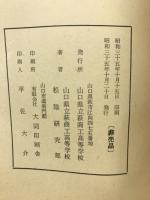 昭和三十五年十月十五日 印刷
昭和三十五年十月二十日 発行
【非売品】
山口県萩市江向四七五番地
発行所 山口県立萩商工高等学校
山口県立萩商工高等学校
著者 松陰研究部
山口市道場門前
印刷所 有限会社 大同印刷舎
印刷人 平佐大介